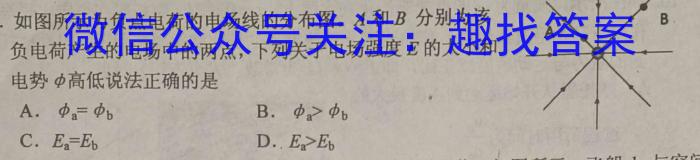 如图所示
电荷的电场线的分布图，A和B 分别为该
B
A
微信公众号关注：趣找答案
负电荷产生的电场中的两点，下列关于电场强度E的大小和
电势φ高低说法正确的是
A. φa=φb
B. φa>φb
C. Ea=Eb
D. Ea>Eb